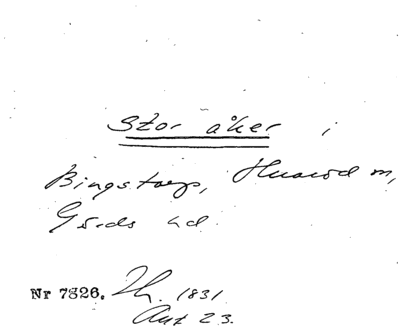 Stor åker i
Bingstorp, Huaröd m,
Gärds hd.
Nr 7326. Th. 1831
Ant 23.